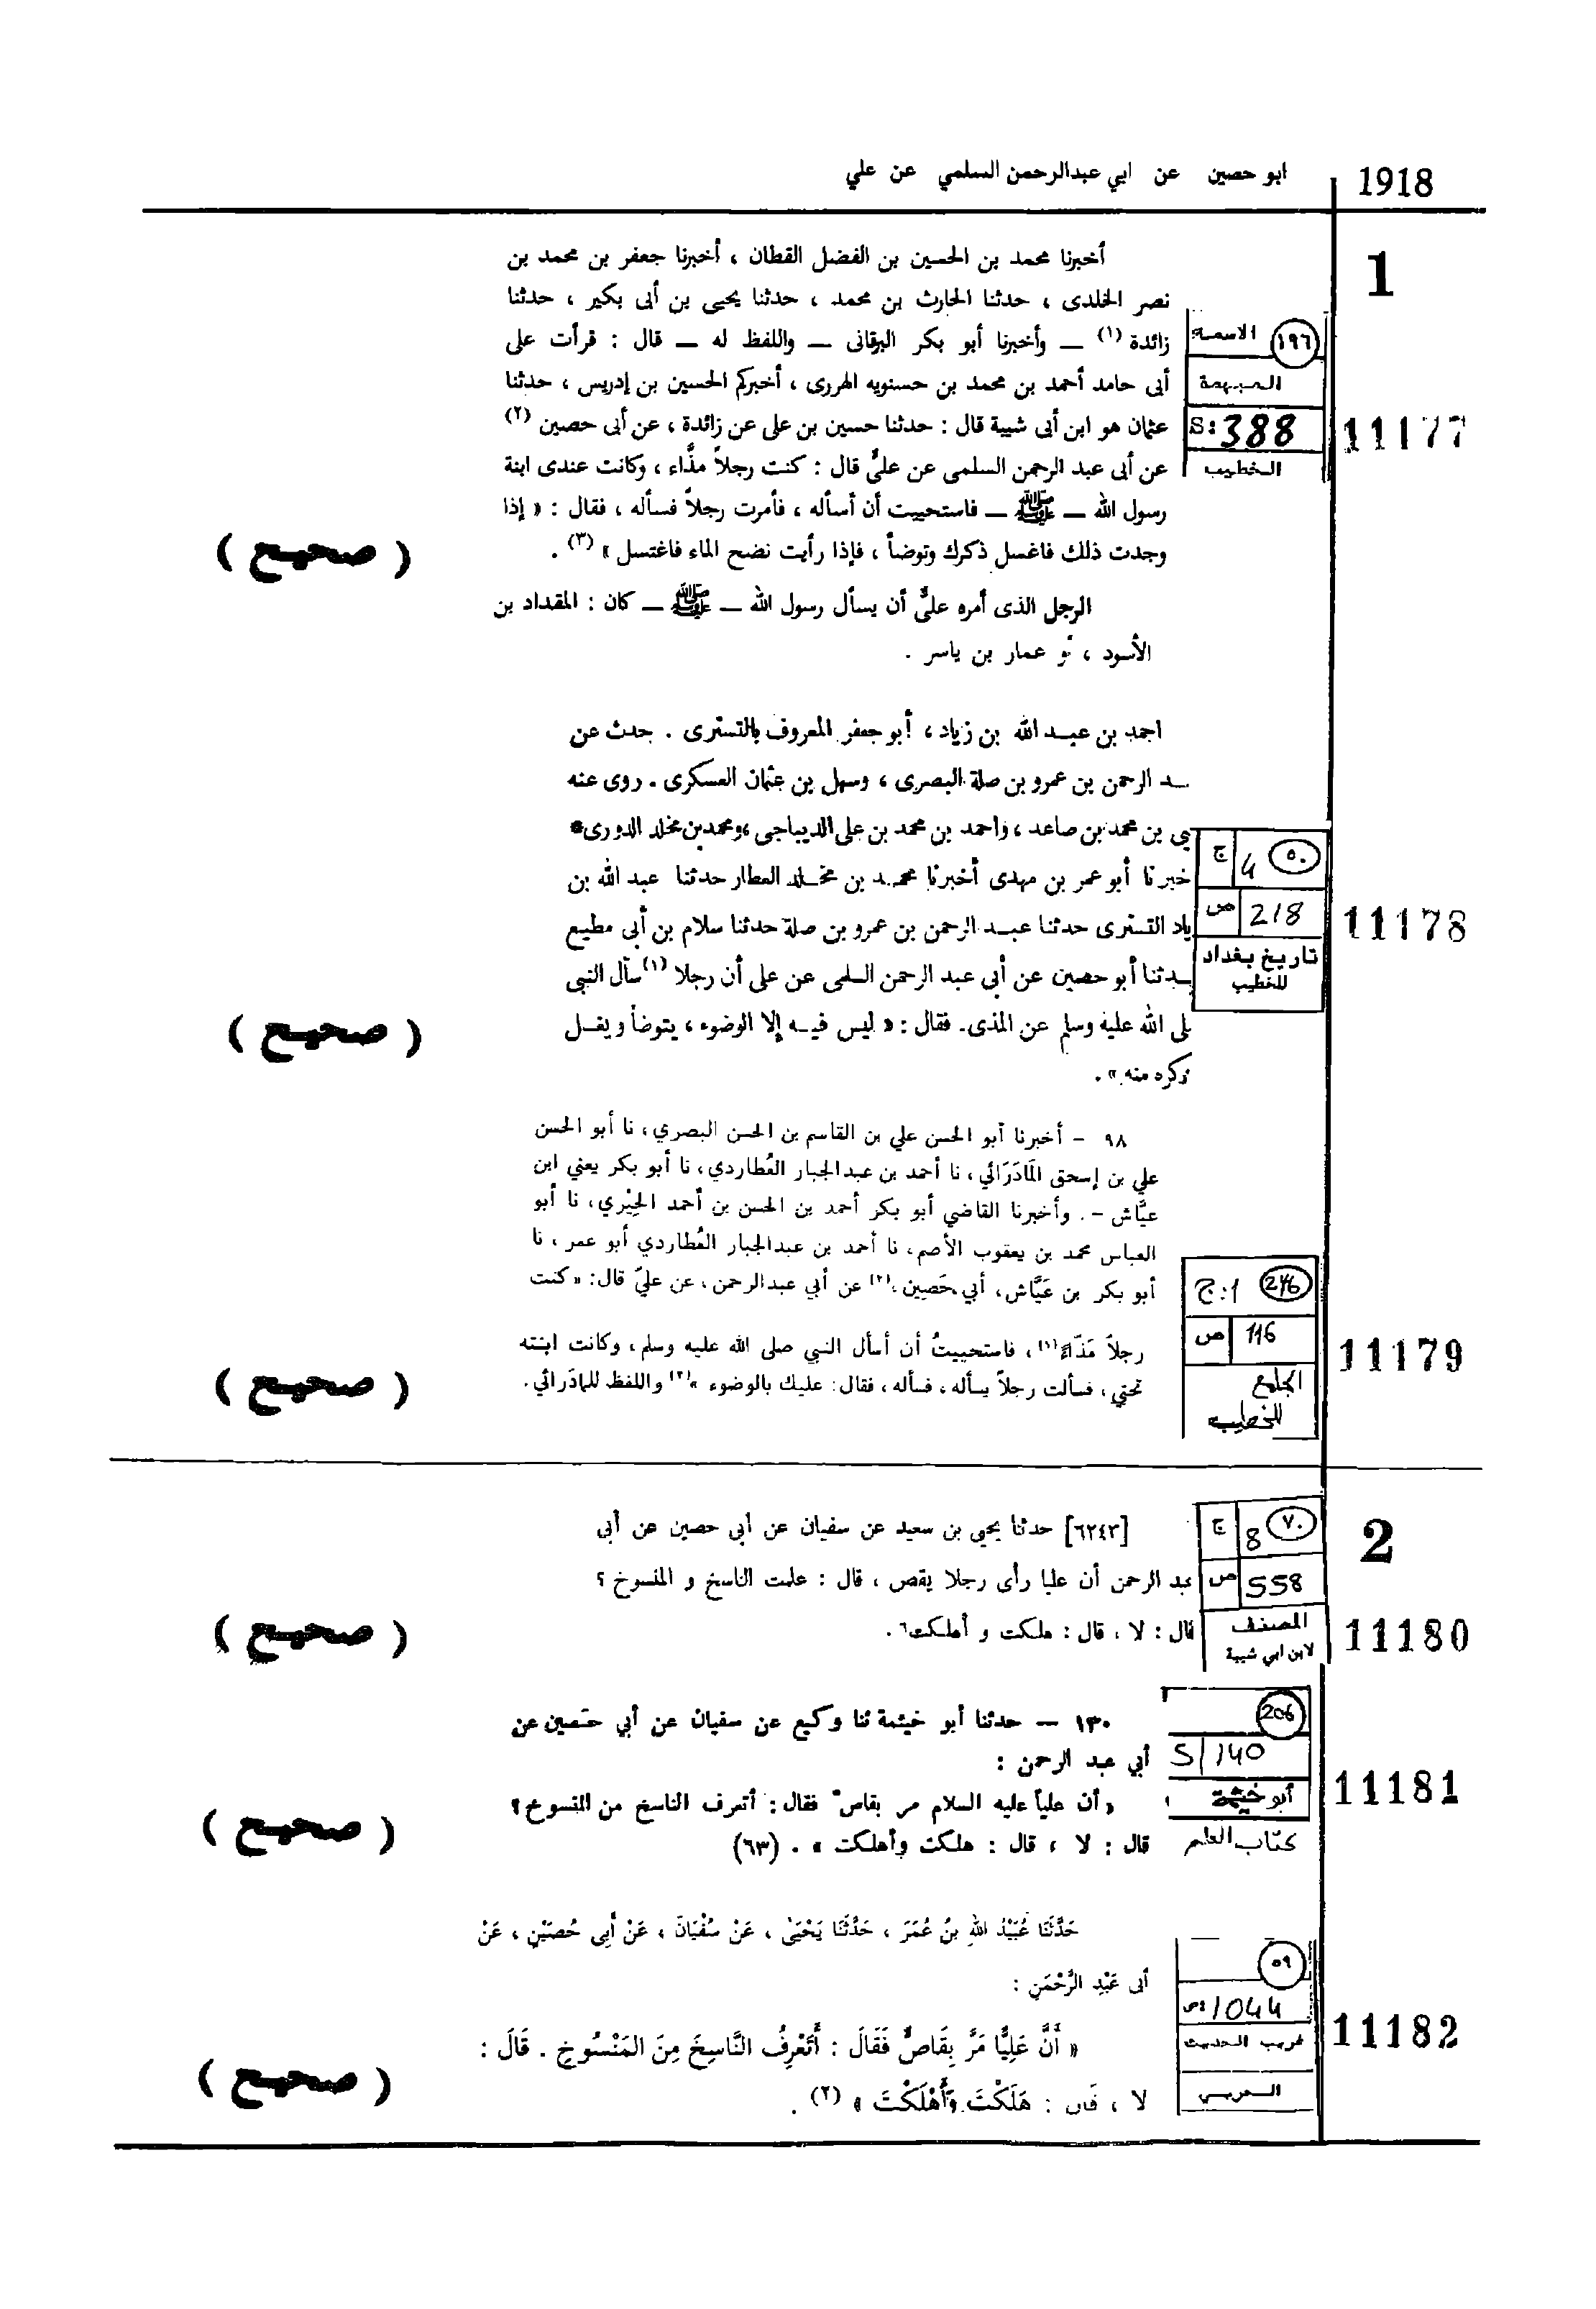 1918
ابو حصين عن ابي عبدالرحمن السلمي عن علي
1
أخبرنا محمد بن الحسين بن الفضل القطان ، أخبرنا جعفر بن محمد بن
نصر الخلدى ، حدثنا الحارث بن محمد ، حدثنا يحيى بن أبى بكير ، حدثنا
زائدة (١) — وأخبرنا أبو بكر البرقانى — واللفظ له — قال : قرأت على
أبى حامد أحمد بن محمد بن حسنويه الهروى ، أخبركم الحسين بن إدريس ، حدثنا
عثمان هو ابن أبى شيبة قال : حدثنا حسين بن على عن زائدة ، عن أبى حصين (٢)
عن أبى عبد الرحمن السلمى عن علىٌّ قال : كنت رجلاً مذَّاء ، وكانت عندى ابنة
رسول الله — ﷺ — فاستحييت أن أسأله ، فأمرت رجلاً فسأله ، فقال : « إذا
وجدت ذلك فاغسل ذكرك وتوضأ ، فإذا رأيت نضح الماء فاغتسل » (٣) .
الرجل الذى أمره علىٌّ أن يسأل رسول الله — ﷺ — كان : المقداد بن
الأسود ، أو عمار بن ياسر .
١٩٦
الاسماء
المبهمة
S: 388
الخطيب
11177
( صحيح )
احمد بن عبد الله بن زياد ، أبو جعفر المعروف بالتسترى . حدث عن
ـد الرحمن بن عمرو بن صلة البصرى ، وسهل بن عثمان العسكرى . روى عنه
يى بن محمد بن صاعد ، واحمد بن محمد بن على الديباجى ، ومحمد بن مخلد الدورى *
خبرنا أبو عمر بن مهدى أخبرنا محمد بن مخلد العطار حدثنا عبد الله بن
ياد التسترى حدثنا عبد الرحمن بن عمرو بن صلة حدثنا سلام بن أبى مطيع
ـدثنا أبو حصين عن أبى عبد الرحمن السلمى عن على أن رجلا (١) سأل النبى
لى الله عليه وسلم عن المذى . فقال : « ليس فيه إلا الوضوء ، يتوضأ ويغسل
ذكره منه » .
٥٠
ج 4
ص 218
تاريخ بغداد
للخطيب
11178
( صحيح )
٩٨ - أخبرنا أبو الحسن علي بن القاسم بن الحسن البصري، نا أبو الحسن
علي بن إسحق المَادَرَائي، نا أحمد بن عبدالجبار العُطاردي، نا أبو بكر يعني ابن
عيَّاش -. وأخبرنا القاضي أبو بكر أحمد بن الحسن بن أحمد الحِيْري، نا أبو
العباس محمد بن يعقوب الأصم، نا أحمد بن عبدالجبار العُطاردي أبو عمر، نا
أبو بكر بن عَيَّاش، أبي حَصِين،(٢) عن أبي عبدالرحمن، عن عليّ قال: «كنت
رجلاً مَذّاءً(١)، فاستحييتُ أن أسأل النبي صلى الله عليه وسلم، وكانت ابنته
تحتي، فسألت رجلاً يسأله، فسأله، فقال: عليك بالوضوء »(٢) واللفظ للمادَرائي.
246
ج:1
ص 116
الجامع
للخطيب
11179
( صحيح )
2
[٦٢٤٣] حدثنا يحيى بن سعيد عن سفيان عن أبى حصين عن أبى
عبد الرحمن أن عليا رأى رجلا يقص ، قال : علمت الناسخ و المنسوخ ؟
قال : لا ، قال : هلكت و أهلكت٦ .
٧٠
ج 8
ص 558
المصنف
لابن ابي شيبة
11180
( صحيح )
١٣٠ — حدثنا أبو خيثمة ثنا وكيع عن سفيان عن أبي حَصين عن
أبي عبد الرحمن :
« أن علياً عليه السلام مر بقاصّ فقال : أتعرف الناسخ من المنسوخ ؟
قال : لا ، قال : هلكت وأهلكت » . (٦٣)
206
S 140
أبو خيثمة
كتاب العلم
11181
( صحيح )
حَدَّثَنَا عُبَيْدُ اللهِ بنُ عُمَرَ ، حَدَّثَنَا يَحْيَىٰ ، عَنْ سُفْيَانَ ، عَنْ أَبِى حُصَيْنٍ ، عَنْ
أَبى عَبْدِ الرَّحْمَنِ :
« أَنَّ عَلِيًّا مَرَّ بِقَاصٍّ فَقَالَ : أَتَعْرِفُ النَّاسِخَ مِنَ المَنْسُوخِ . قَالَ :
لا ، قَالَ : هَلَكْتَ وَأَهْلَكْتَ » (٢) .
٥٩
ص: 1044
غريب الحديث
الحربي
11182
( صحيح )